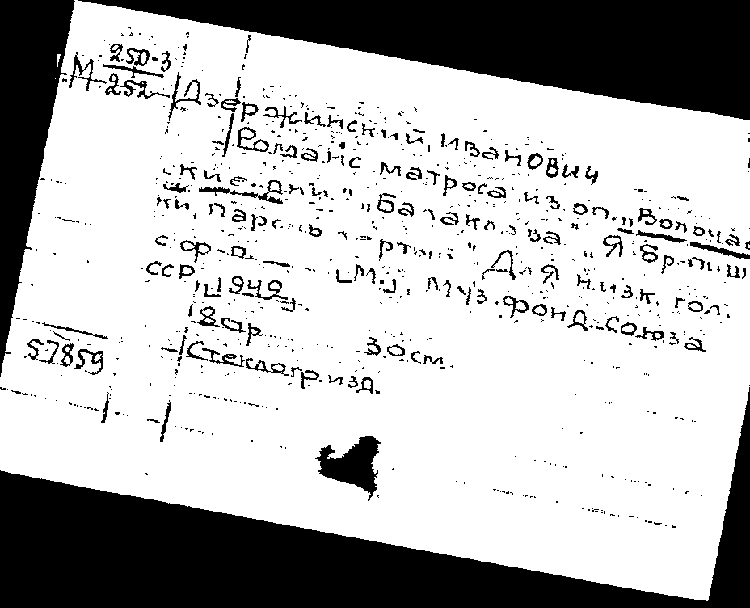 М 250-3
252
Дзержинский, Иванович
Романс матроса из оп. „Волочаев
ские дни." „Балаклава" „Я бр
ки, парень " Для низк. гол.
с ф-п. [М.], Муз. фонд Союза
ССР, [1949]
8 стр 30 см.
57859 Стеклогр. изд.